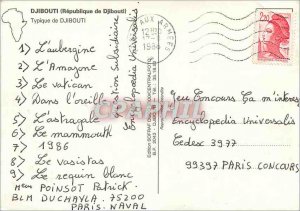 DJIBOUTI (République de Djibouti)
Typique de DJIBOUTI
AUX ARMEES
1986
2,20
1) L'aubergine
2) L'Amazone
3) Le vatican
4) Dans l'oreille
5) L'astragale
6) Le mammouth
7) 1986
8) Le vasistas
9) Le requin blanc
Question subsidiaire
Encyclopædia Universalis
POINSOT Patrick
BLM DUCHAYLA 75200
PARIS NAVAL
Jeu Concours Ça m'intéresse
Encyclopædia Universalis
Cedex 3977
99397 PARIS CONCOURS